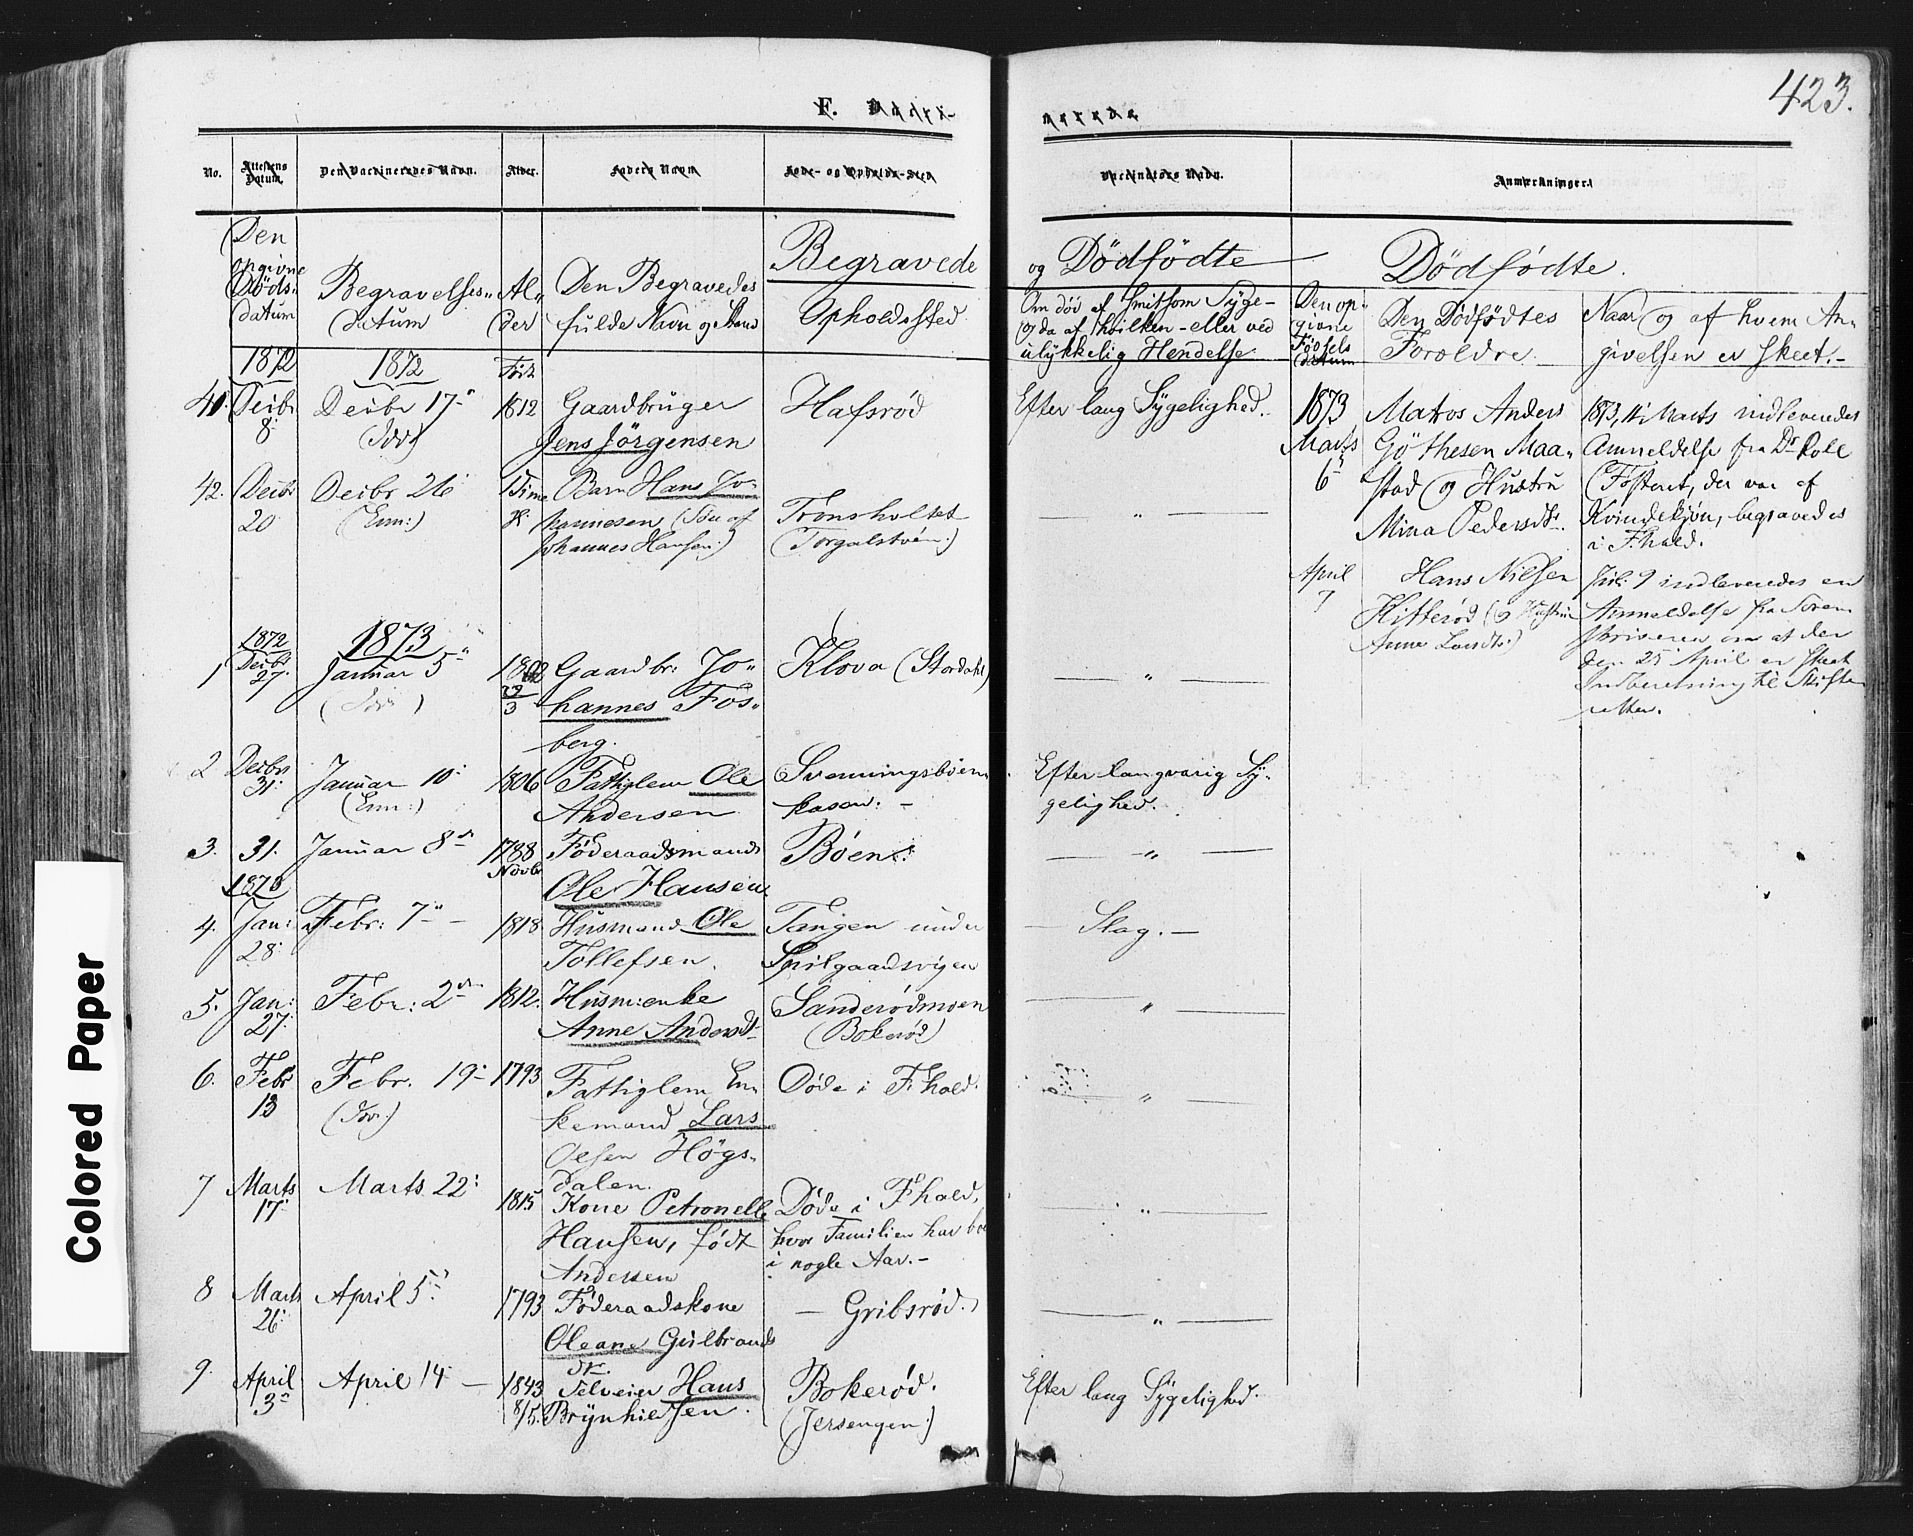 423.
F. Vacci-
nerede
No.
Attestens Datum.
Den Vaccineredes Navn.
Alder.
Faders Navn
Føde- og Opholds-Sted
Vaccinators Navn.
Anmærkninger.
Begravede
og Dödfödte
Dödfødte.
Den
opgivne
Döds-
datum
Begravelses-
datum
Al-
der
Den Begravedes
fulde Navn og Stand
Opholdssted
Om död af smitsom Syge-
og da af hvilken - eller ved
ulykkelig Hendelse
Den op-
givne
Födsels
datum
Den Dödfödtes
Foroldre.
Naar og af hvem An-
givelsen er skeet.-
1872
1872
Födt
41.
Decbr
8.
Decbr 17.
(Idd)
1812
Gaardbruger
Jens Jörgensen
Hafsrød
Efter lang Sygelighed.
42.
Decbr
20
Decbr 26
(Enn:)
1 Time
Barn Hans Jo-
hannesen (Sön af
Johannes Hansen.)
Tronsholtet
(Torgalstven.)
1873
Marts
6
Matros Anders
Göthesen Maa-
stad og Hustru
Mina Pedersdtr.
1873, 11 Marts indleveredes
Anmeldelse fra Dr Roll
(Fosteret, der var af
Kvindekjön, begravedes
i Fhald.
April
7
Hans Nilsen
Hitterød (og Hustru
Anne Larsdtr.)
9 indleveredes en
Anmeldelse fra Soren-
skriveren om at der
den 25 April er skeet
Indberetning til Skifte-
retten.
1872
1873
1
Decbr
27.
Januar 5
(Idd)
1802
29
3
Gaardbr: Jo-
hannes Fos-
berg.
Klova (Stordahl)
2
Decbr
31.
Januar 10.
(Enn:)
1806
Fattiglem Ole
Andersen
Svenningsböen-
kasen. -
Efter langvarig Sy-
gelighed.
3.
31.
Januar 8de
1788
Novbr
Föderaadsmand
Ole Hansen
Böen.
1873
4.
Jan:
28.
Febr: 7 -
1818
Husmand Ole
Tollefsen.
Tangen under
Spilgaardsvigen
- Slag. -
5.
Jan:
27.
Febr: 2den
1812.
Husmenke
Anne Andersdtr
Sanderødmoen
(Bokerød)
6.
Febr
13
Febr. 19 -
(Idd.)
1793
Fattiglem En-
kemand Lars
Olsen Högs-
dalen.
Döde i Fhald.
7
Marts
17.
Marts 22.
1815
Kone Petronelle
Hansen, födt
Andersen
Døde i Fhald,
hvor Familien har bo
i nogle Aar. -
8
Marts
26.
April 5
1793
Föderaadskone
Oleane Gulbrands
dtr.
- Gribsrød.
9.
April
3
April 14 -
1843
8/5.
Selveier Hans
Brynhildsen.
Bokerød.
(Jersengen.)
Efter lang Sygelighed.
Colored Paper